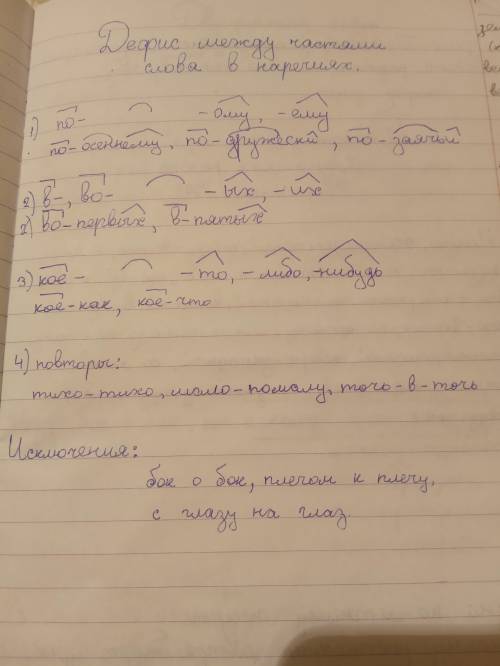 Дефис между частями
слова в наречиях.
1) по- -ому, -ему
по-осеннему, по-дружески, по-заячьи
2) в-, во- -ых, -их
2) во-первых, в-пятых
3) кое- -то, -либо, -нибудь
кое-как, кое-что
4) повторы:
тихо-тихо, мало-помалу, точь-в-точь
Исключения:
бок о бок, плечом к плечу,
с глазу на глаз.